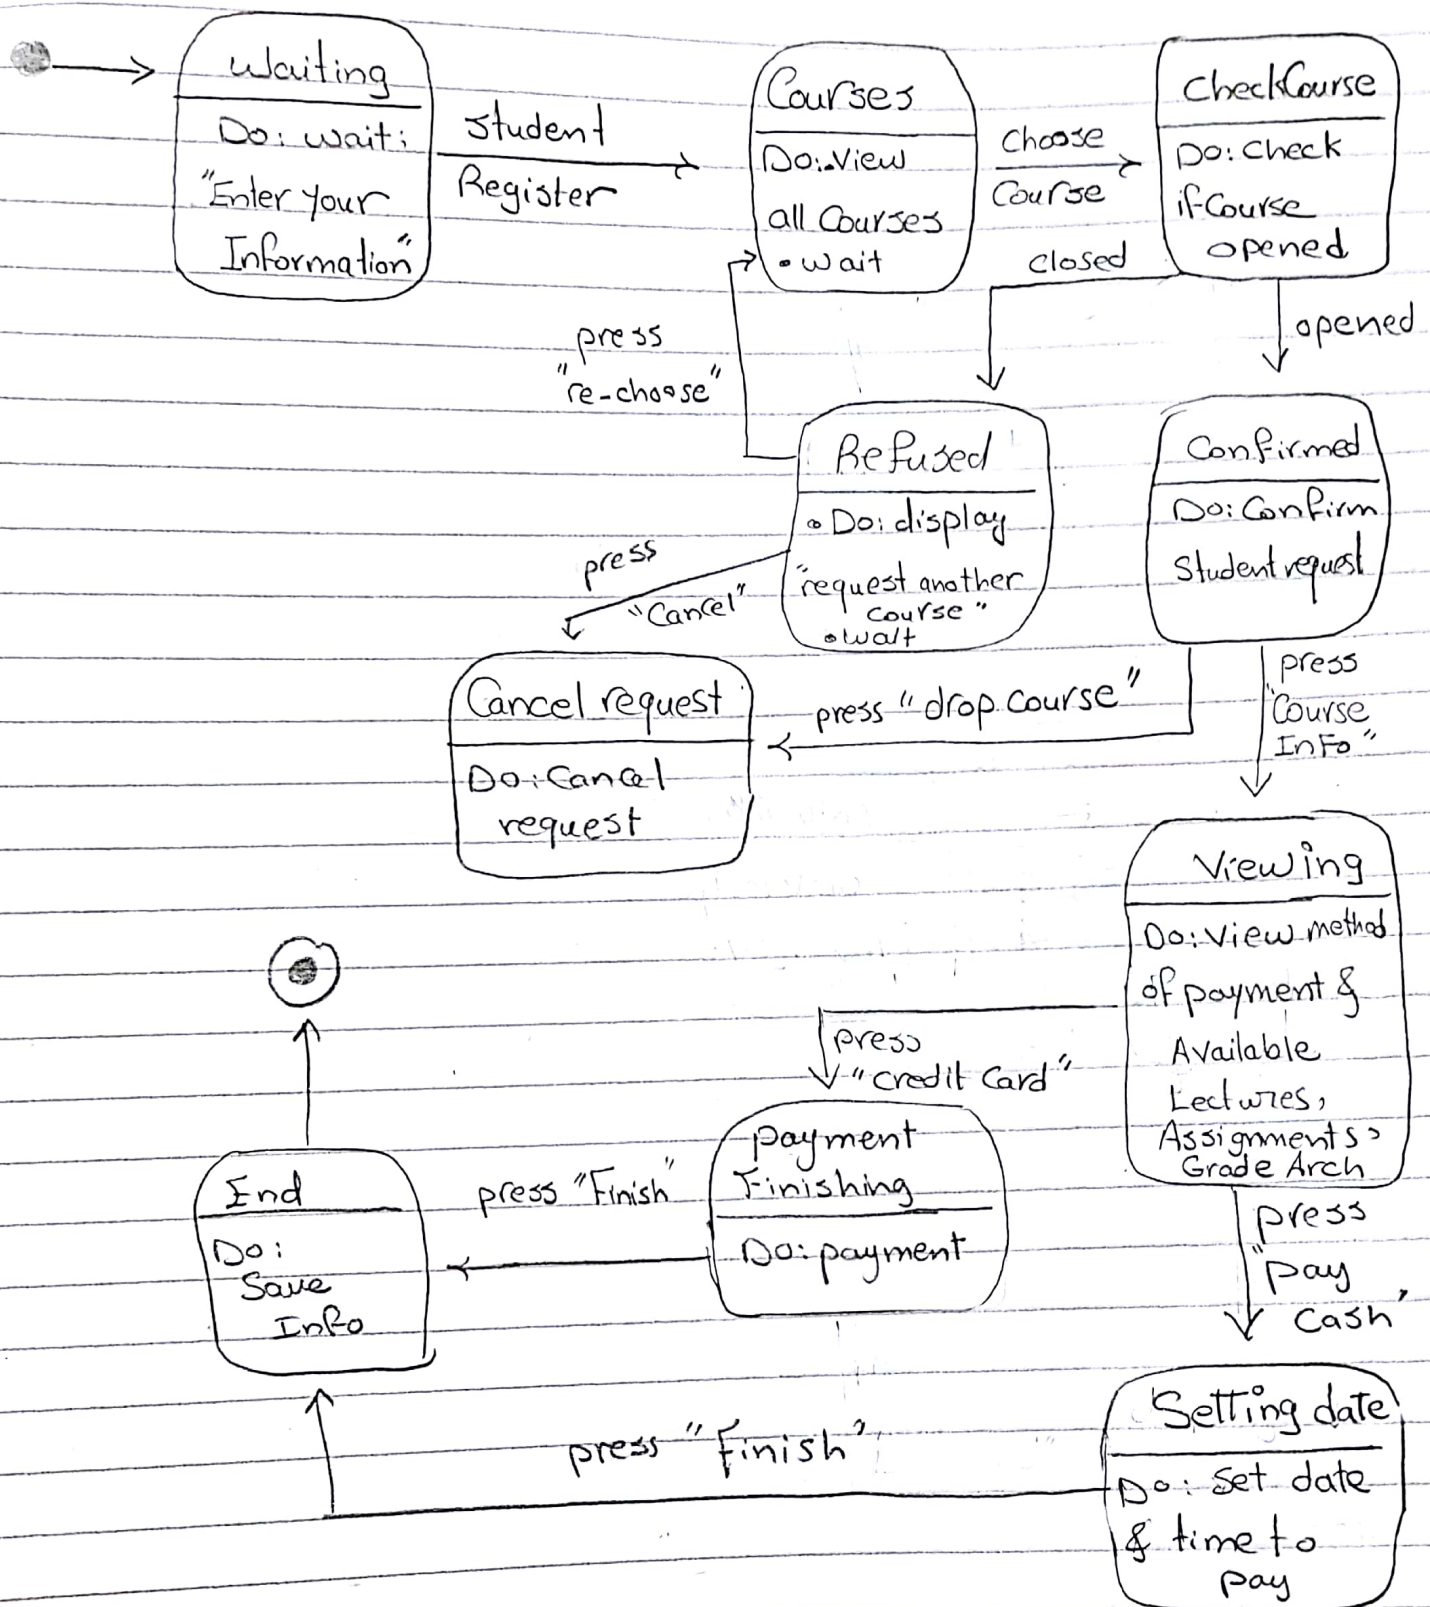 Waiting
Do: wait:
"Enter your
Information"
Student
Register
Courses
Do: View
all Courses
• wait
Choose
Course
CheckCourse
Do: Check
if Course
opened
closed
opened
press
"re-choose"
Refused
• Do: display
"request another
course"
• wait
Confirmed
Do: Confirm
Student request
press
"Cancel"
Cancel request
Do: Cancel
request
press "drop course"
press
"Course
Info"
Viewing
Do: View method
of payment &
Available
Lectures,
Assignments,
Grade Arch
press
"credit Card"
payment
Finishing
Do: payment
press "Finish"
End
Do:
Save
Info
press
"pay
Cash"
Setting date
Do: set date
& time to
pay
press "Finish"